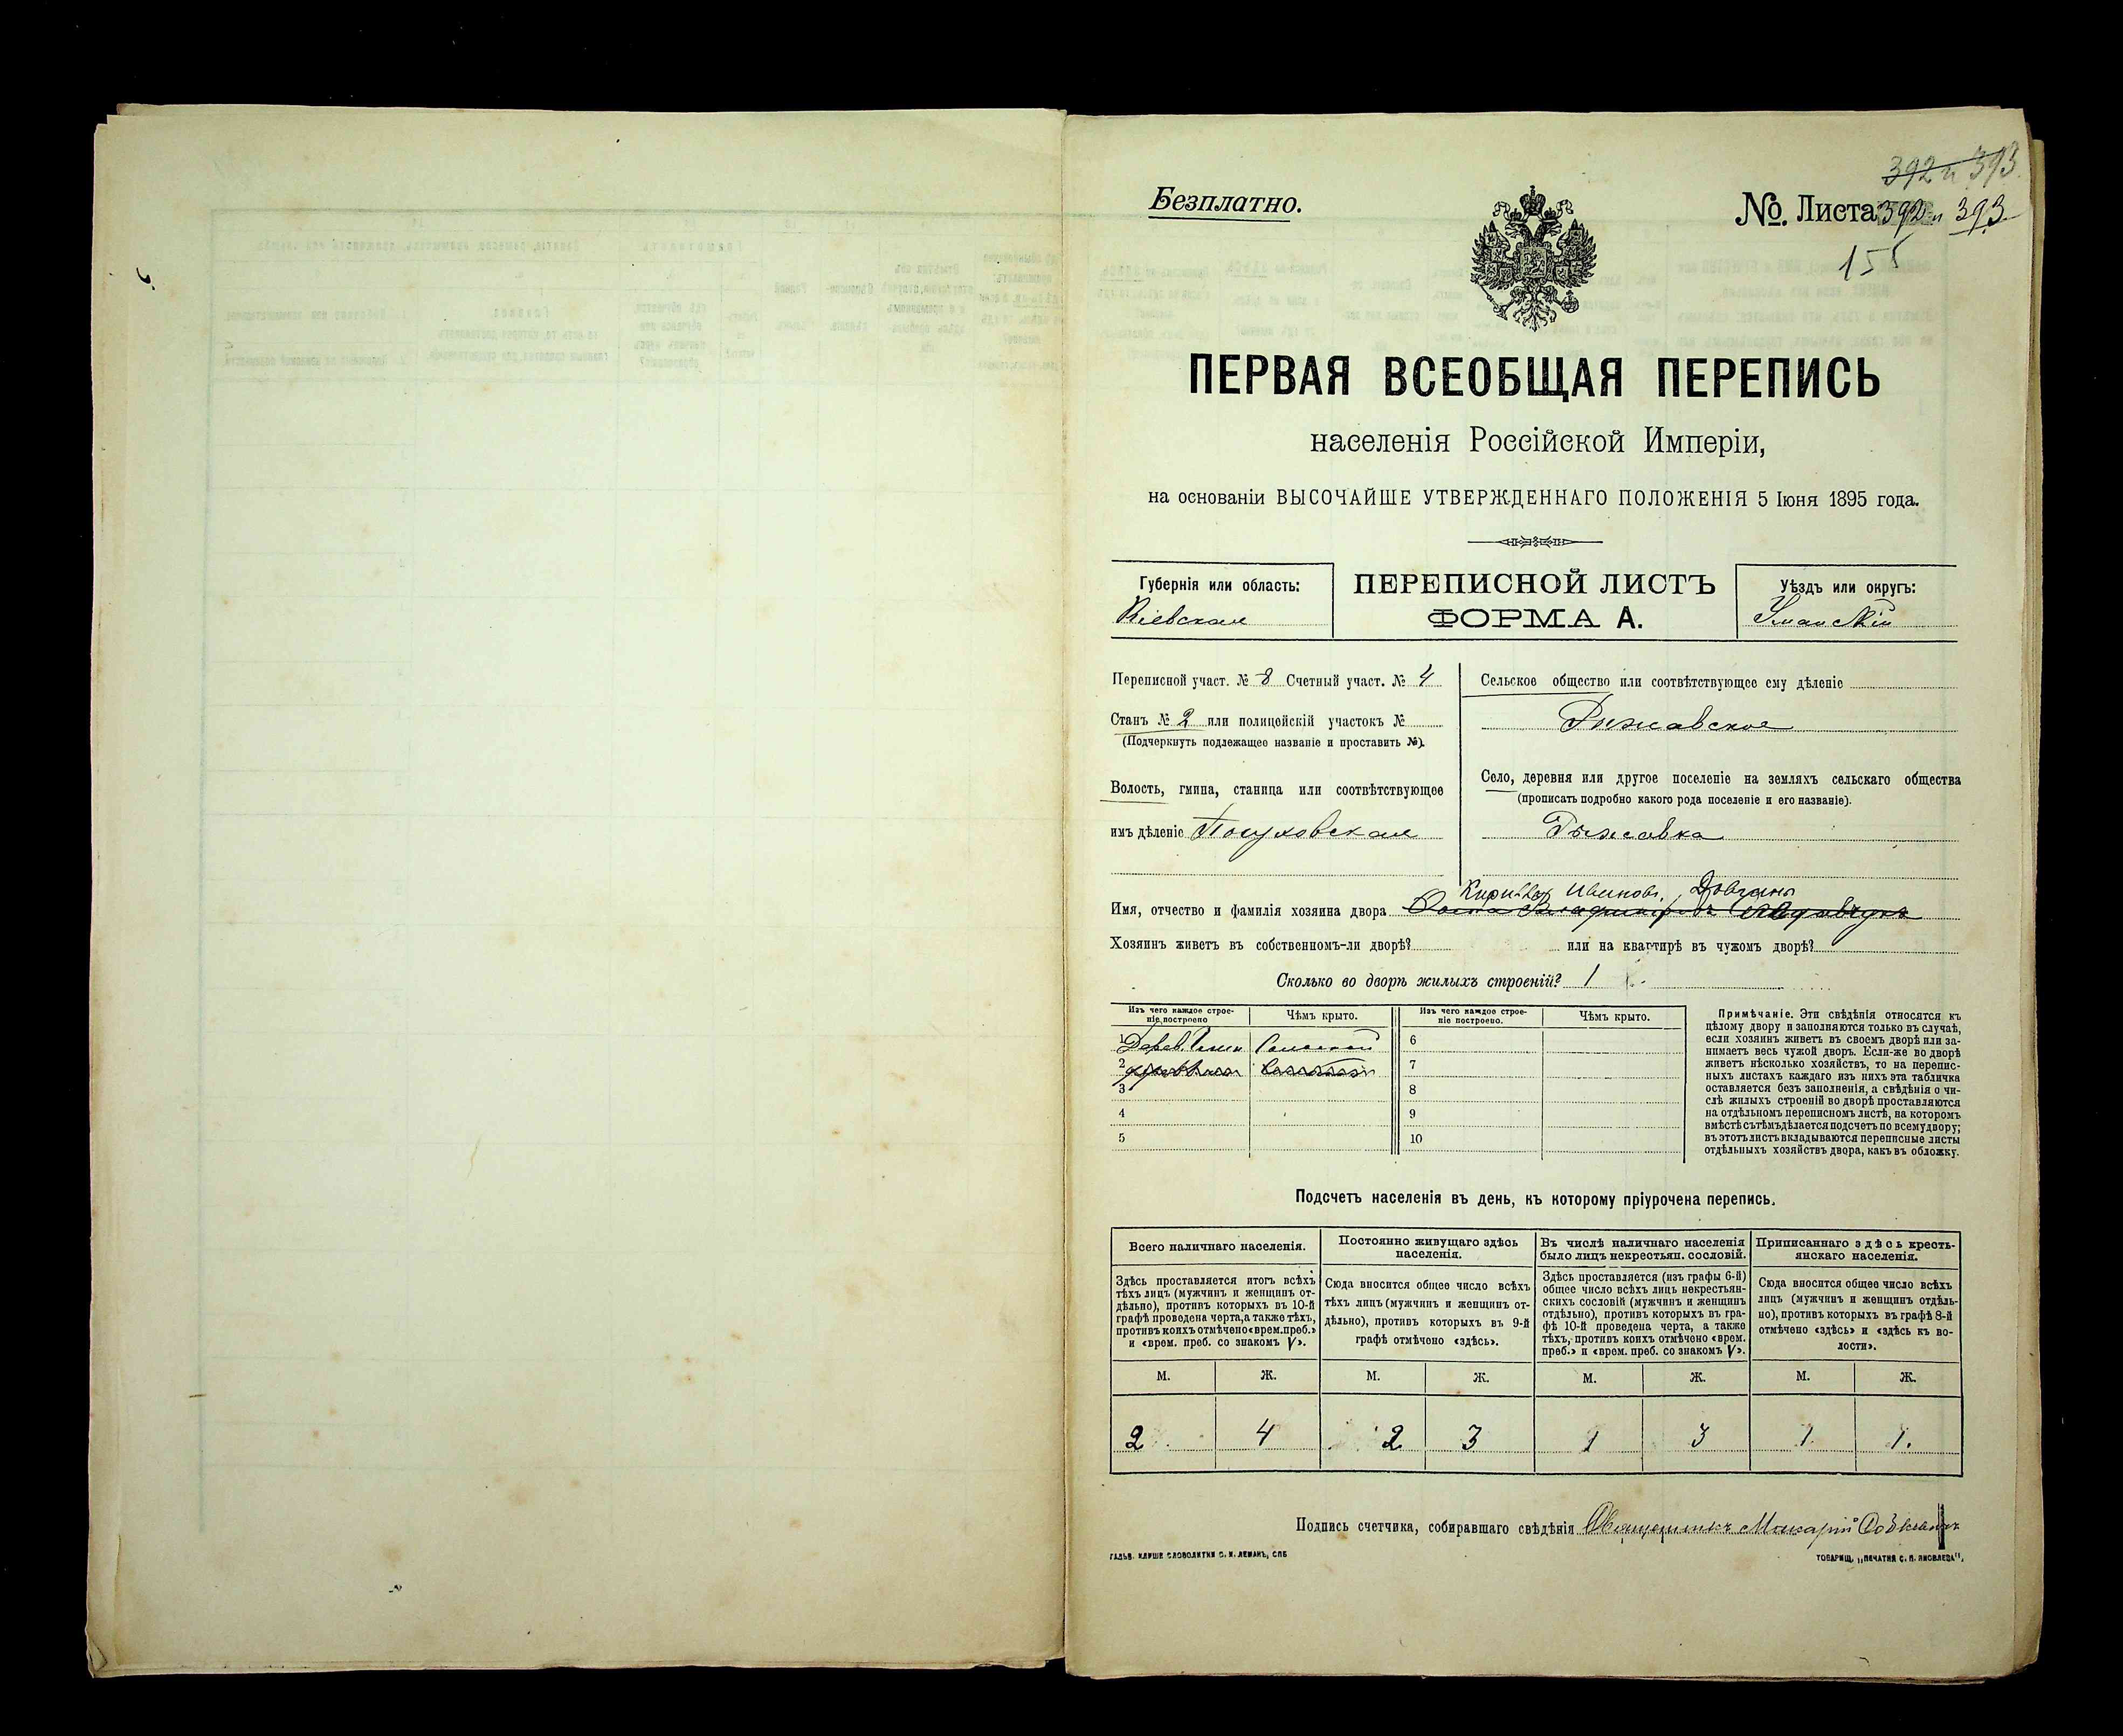 392 и 393
Безплатно.
№ Листа 392 и 393
155
ПЕРВАЯ ВСЕОБЩАЯ ПЕРЕПИСЬ
населенія Россійской Имперіи,
на основаніи ВЫСОЧАЙШЕ УТВЕРЖДЕННАГО ПОЛОЖЕНІЯ 5 Іюня 1895 года.
Губернія или область:
Кіевская
ПЕРЕПИСНОЙ ЛИСТЪ
ФОРМА А.
Уѣздъ или округъ:
Уманскій
Переписной участ. № 8 Счетный участ. № 4
Станъ № 2 или полицейскій участокъ №
(Подчеркнуть подлежащее названіе и проставить №).
Волость, гмина, станица или соотвѣтствующее
имъ дѣленіе
Сельское общество или соотвѣтствующее ему дѣленіе
Рыжавское
Село, деревня или другое поселеніе на земляхъ сельскаго общества
(прописать подробно какого рода поселеніе и его названіе).
Рыжавка
Ивановъ Довганъ
Имя, отчество и фамилія хозяина двора
Хозяинъ живетъ въ собственномъ-ли дворѣ? или на квартирѣ въ чужомъ дворѣ?
Сколько во дворѣ жилыхъ строеній? 1
Изъ чего каждое строе-
ніе построено
Чѣмъ крыто.
Изъ чего каждое строе-
ніе построено.
Чѣмъ крыто.
1 Соломой
2
3
4
5
6
7
8
9
10
Примѣчаніе. Эти свѣдѣнія относятся къ
цѣлому двору и заполняются только въ случаѣ,
если хозяинъ живетъ въ своемъ дворѣ или за-
нимаетъ весь чужой дворъ. Если-же во дворѣ
живетъ нѣсколько хозяйствъ, то на перепис-
ныхъ листахъ каждаго изъ нихъ эта табличка
оставляется безъ заполненія, а свѣдѣнія о чи-
слѣ жилыхъ строеній во дворѣ проставляются
на отдѣльномъ переписномъ листѣ, на которомъ
вмѣстѣ съ тѣмъ дѣлается подсчетъ по всему двору;
въ этотъ листъ вкладываются переписные листы
отдѣльныхъ хозяйствъ двора, какъ въ обложку.
Подсчетъ населенія въ день, къ которому пріурочена перепись.
Всего наличнаго населенія.
Здѣсь проставляется итогъ всѣхъ
тѣхъ лицъ (мужчинъ и женщинъ от-
дѣльно), противъ которыхъ въ 10-й
графѣ проведена черта, а также тѣхъ,
противъ коихъ отмѣчено «врем. преб.»
и «врем. преб. со знакомъ V».
Постоянно живущаго здѣсь
населенія.
Сюда вносится общее число всѣхъ
тѣхъ лицъ (мужчинъ и женщинъ от-
дѣльно), противъ которыхъ въ 9-й
графѣ отмѣчено «здѣсь».
Въ числѣ наличнаго населенія
было лицъ некрестьян. сословій.
Здѣсь проставляется (изъ графы 6-й)
общее число всѣхъ лицъ некрестьян-
скихъ сословій (мужчинъ и женщинъ
отдѣльно), противъ которыхъ въ гра-
фѣ 10-й проведена черта, а также
тѣхъ, противъ коихъ отмѣчено «врем.
преб.» и «врем. преб. со знакомъ V».
Приписаннаго здѣсь кресть-
янскаго населенія.
Сюда вносится общее число всѣхъ
лицъ (мужчинъ и женщинъ отдѣль-
но), противъ которыхъ въ графѣ 8-й
отмѣчено «здѣсь» и «здѣсь къ во-
лости».
М. Ж. М. Ж. М. Ж. М. Ж.
2 4 2 3 1 3 1 1.
Подпись счетчика, собиравшаго свѣдѣнія Священникъ Макарій
ГАЛЬВ. КЛИШЕ СЛОВОЛИТНИ О. И. ЛЕМАНЪ, СПБ
ТОВАРИЩ. „ПЕЧАТНЯ С. П. ЯКОВЛЕВА",